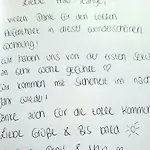 Liebe Frau Lange,
vielen Dank für den tollen
Aufenthalt in dieser wunderschönen
Wohnung!
Wir haben uns von der ersten Sek
an sehr wohl gefühlt ♡
Wir kommen mit Sicherheit im näch
Jahr wieder!
Danke auch für die tolle Kommun
Liebe Grüße & Bis bald
&